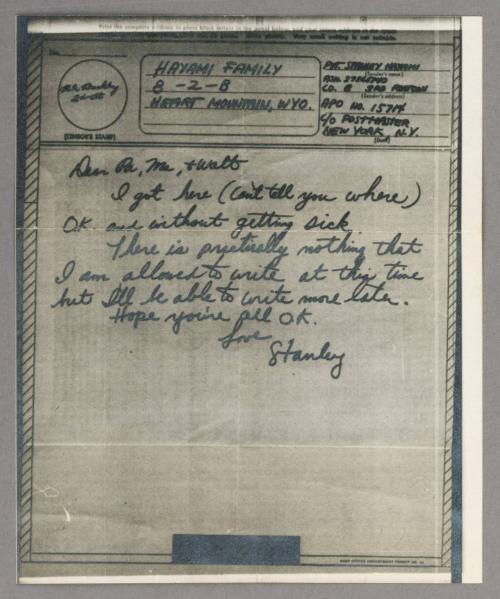 Print the complete address in plain block letters in the panel below, and your return address in the space
Very small writing is not suitable.
No.
HAYAMI FAMILY
8-2-B
HEART MOUNTAIN, WYO.
[CENSOR'S STAMP]
PVT. STANLEY HAYAMI
(Sender's name)
CO. B 3RD PLATOON
(Sender's address)
APO NO. 15714
C/O POSTMASTER
NEW YORK, N.Y.
(Date)
Dear Pa, Ma, + Walt
I got here (can't tell you where)
OK and without getting sick.
There is practically nothing that
I am allowed to write at this time
but I'll be able to write more later.
Hope you're all OK.
Love
Stanley
POST OFFICE DEPARTMENT PERMIT NO.